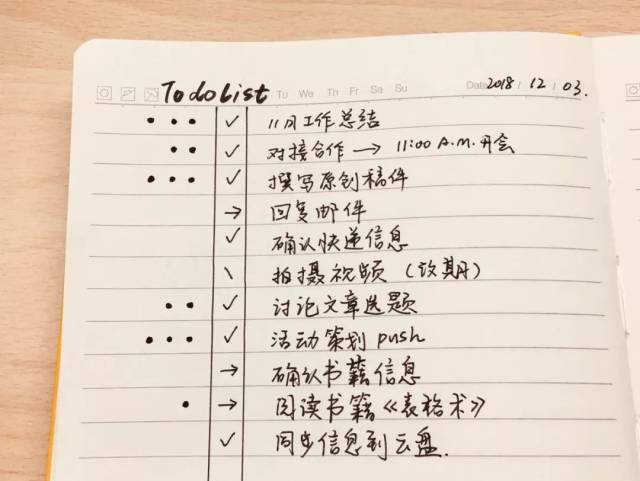 Todo List Tu We Th Fr Sa Su Date 2018 / 12 / 03.
••• ✓ 11月工作总结
•• ✓ 对接合作 → 11:00 A.M.开会
••• ✓ 撰写原创稿件
→ 回复邮件
✓ 确认快递信息
\ 拍摄视频（改期）
•• ✓ 讨论文章选题
••• ✓ 活动策划 push
→ 确认书籍信息
• → 阅读书籍《表格术》
✓ 同步信息到云盘.